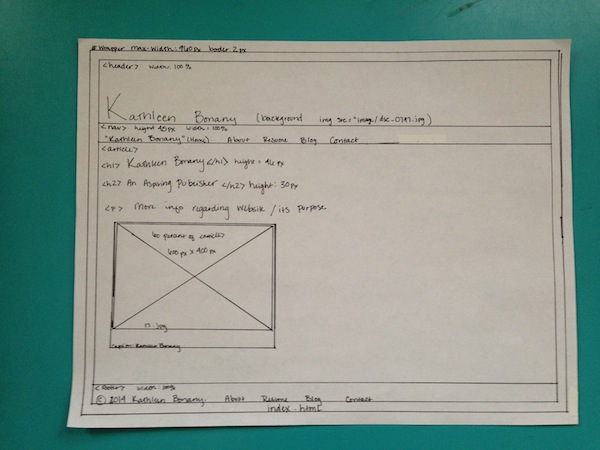 #wrapper max-width: 960px border 2px
<header> width: 100%
Kathleen Bonany (background img src="image/dsc_0747.jpg)
<nav> height 45px width = 100%
"Kathleen Bonany" (Home) About Resume Blog Contact
<article>
<h1> Kathleen Bonany </h1> height = 46px
<h2> An Aspiring Publisher </h2> height: 30px
<p> More info regarding website / its purpose
60 percent of <article>
600px x 400px
.jpg
Caption: Kathleen Bonany
<footer> width: 100%
© 2014 Kathleen Bonany. About Resume Blog Contact
index.html